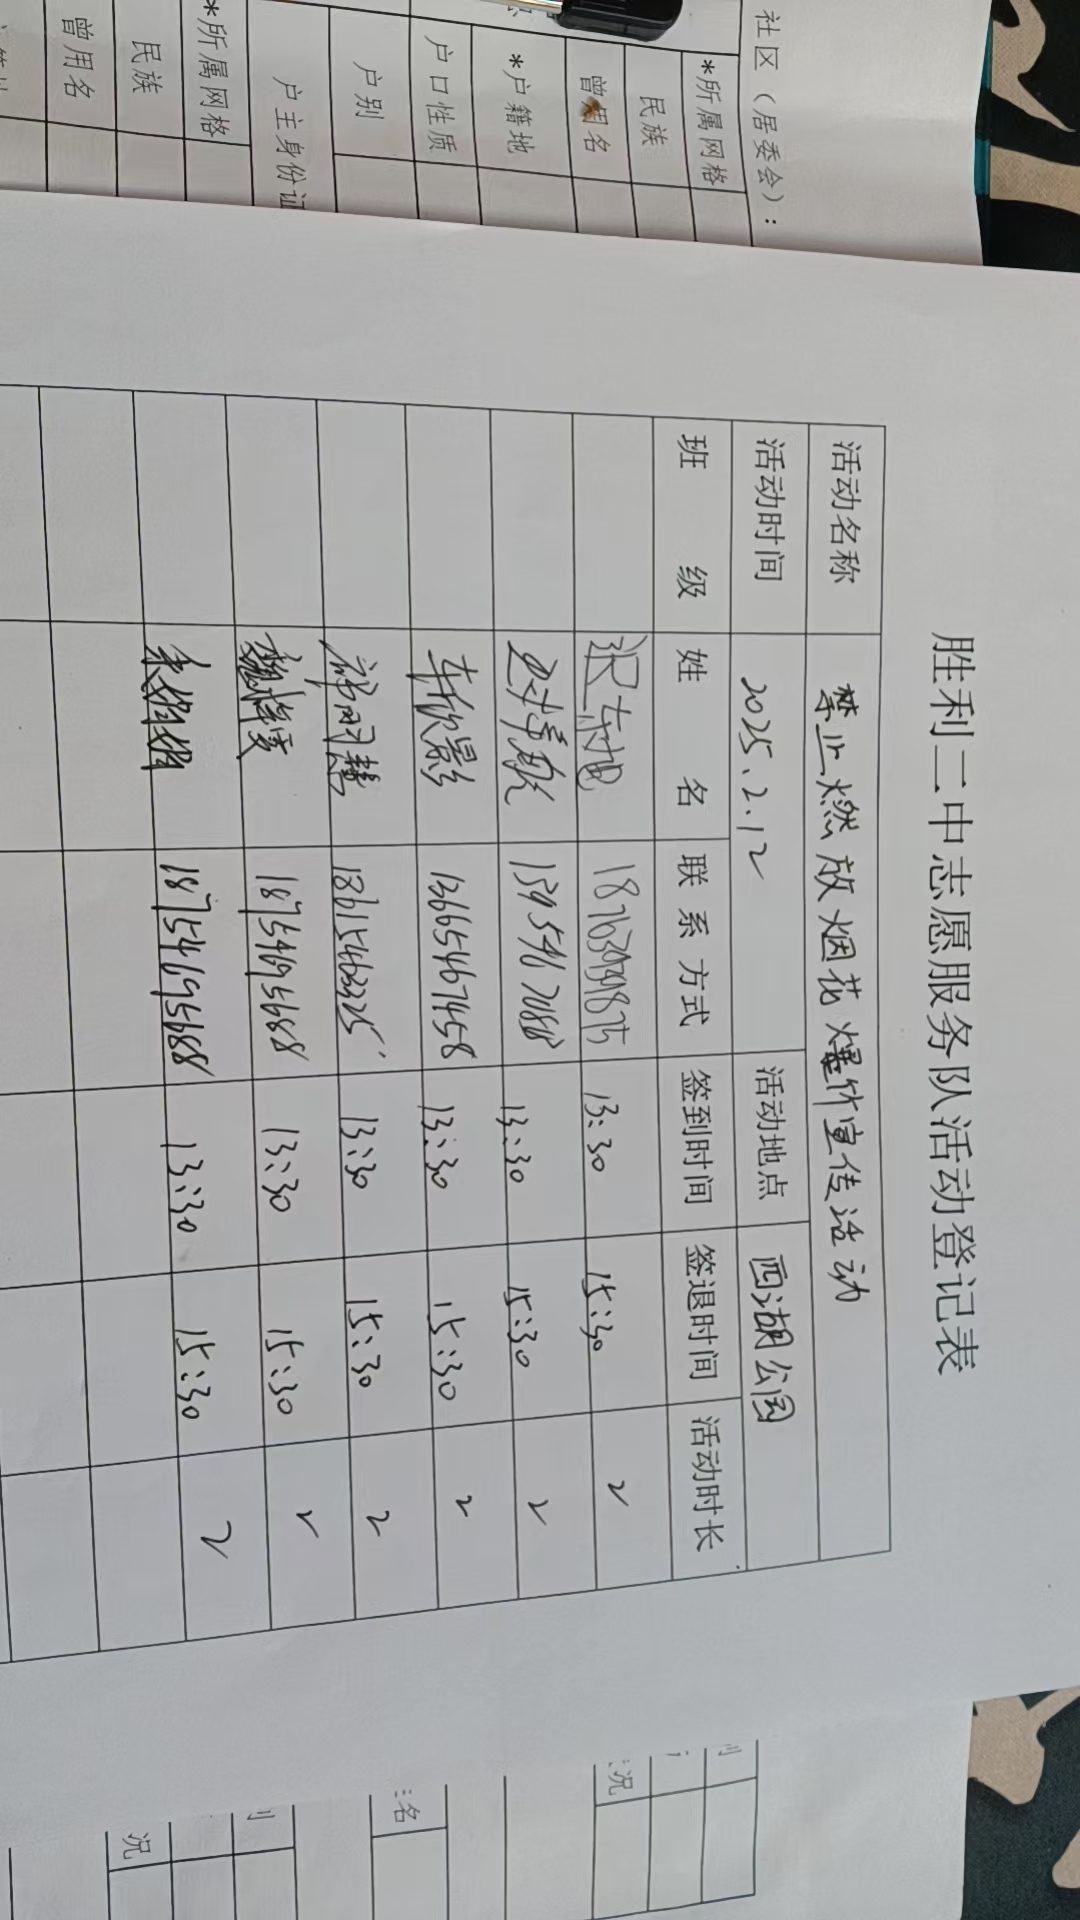 社区（居委会）：
*所属网格
民族
曾用名
*户籍地
户口性质
户别
户主身份证
*所属网格
民族
曾用名
胜利二中志愿服务队活动登记表
活动名称 禁止燃放烟花爆竹宣传活动
活动时间 2025.2.12 活动地点 西湖公园
班 级 姓 名 联系方式 签到时间 签退时间 活动时长
张东旭 13:30 15:30 2
13:30 15:30 2
13665467458 13:30 15:30 2
13:30 15:30 2
18754695688 13:30 15:30 2
18754695688 13:30 15:30 2
况
名
况